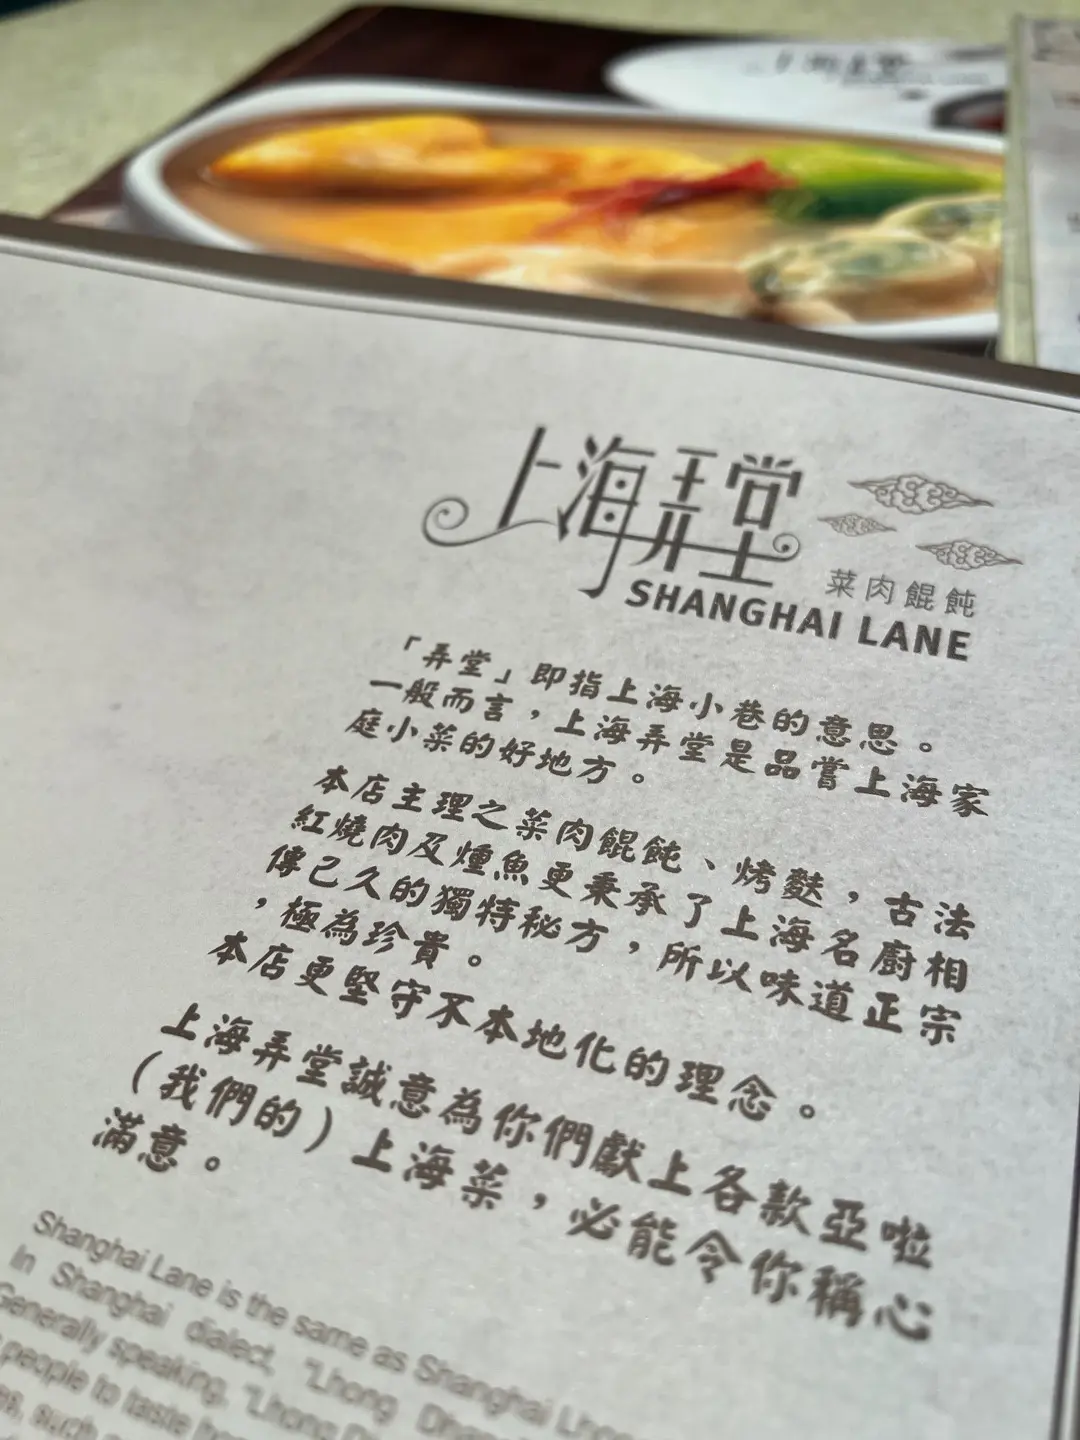 上海弄堂
菜肉餛飩
SHANGHAI LANE
「弄堂」即指上海小巷的意思。
一般而言，上海弄堂是品嘗上海家
庭小菜的好地方。
本店主理之菜肉餛飩、烤麩，古法
紅燒肉及燻魚更秉承了上海名廚相
傳已久的獨特秘方，所以味道正宗
，極為珍貴。
本店更堅守不本地化的理念。
上海弄堂誠意為你們獻上各款亞啦
（我們的）上海菜，必能令你稱心
滿意。
Shanghai Lane is the same as Shanghai
In Shanghai dialect, "Lhong
Generally speaking, "Lhong
people to taste
such